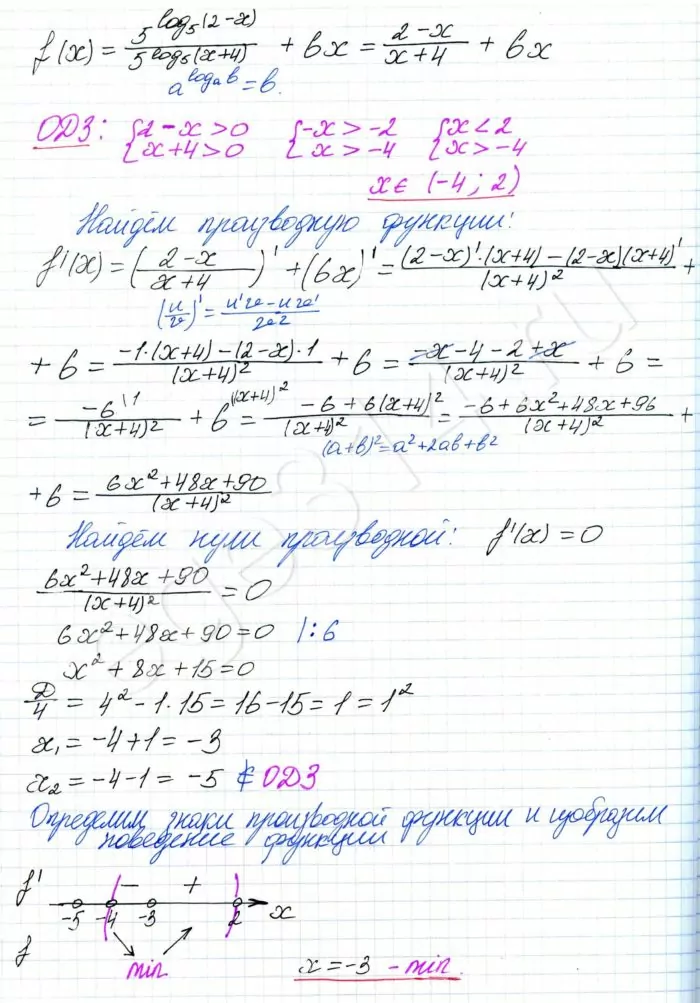 f(x) = 5^log₅(2-x) / 5^log₅(x+4) + 6x = (2-x)/(x+4) + 6x
a^logₐb = b.
ОДЗ: {2-x>0 {-x>-2 {x<2
{x+4>0 {x>-4 {x>-4
x ∈ (-4; 2)
Найдём производную функции:
f'(x) = ((2-x)/(x+4))' + (6x)' = ((2-x)'·(x+4) - (2-x)(x+4)')/(x+4)² +
(u/v)' = (u'v - uv')/v²
+ 6 = (-1·(x+4) - (2-x)·1)/(x+4)² + 6 = (-x-4-2+x)/(x+4)² + 6 =
= -6^\1/(x+4)² + 6^\(x+4)² = (-6+6(x+4)²)/(x+4)² = (-6+6x²+48x+96)/(x+4)² +
(a+b)² = a²+2ab+b²
+ 6 = (6x²+48x+90)/(x+4)²
Найдём нули производной: f'(x) = 0
(6x²+48x+90)/(x+4)² = 0
6x²+48x+90=0 /:6
x²+8x+15=0
Д/4 = 4²-1·15=16-15=1=1²
x₁ = -4+1 = -3
x₂ = -4-1 = -5 ∉ ОДЗ
Определим знаки производной функции и изобразим
поведение функции
f' - +
-5 -4 -3 2 x
f
min x = -3 - min.
ege314.ru